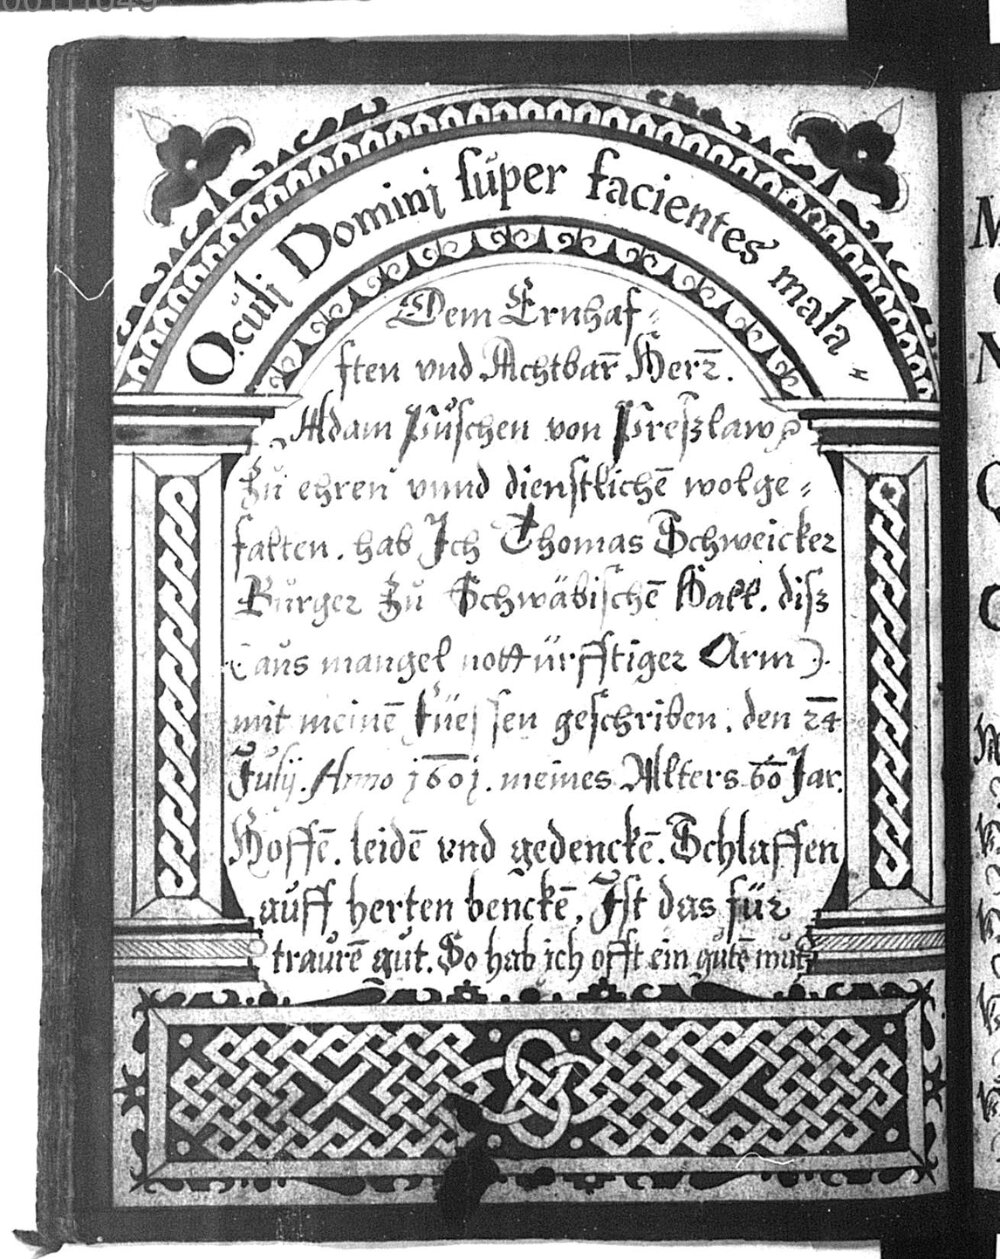 Oculi Domini super facientes mala
Dem Ernhaf⸗
ften vnd Achtbar̄ Herr̄.
Adam Pŭschen von Preßlaw
Zŭ ehren vnnd dienstlichē wolge⸗
falten. hab Ich Thomas Schweicker
Bŭrger Zŭ Schwäbischē Hall. diß
(aŭs mangel nottürfftiger Arm).
mit meinē Füessen geschriben. den 24
Jŭlij. Anno 1601. meines Alters. 60 Jar.
Hoffē. leidē vnd gedenckē. Schlaffen
aŭff herten benckē. Ist das für
traŭrē gŭt. So hab ich offt ein gŭtē mŭt